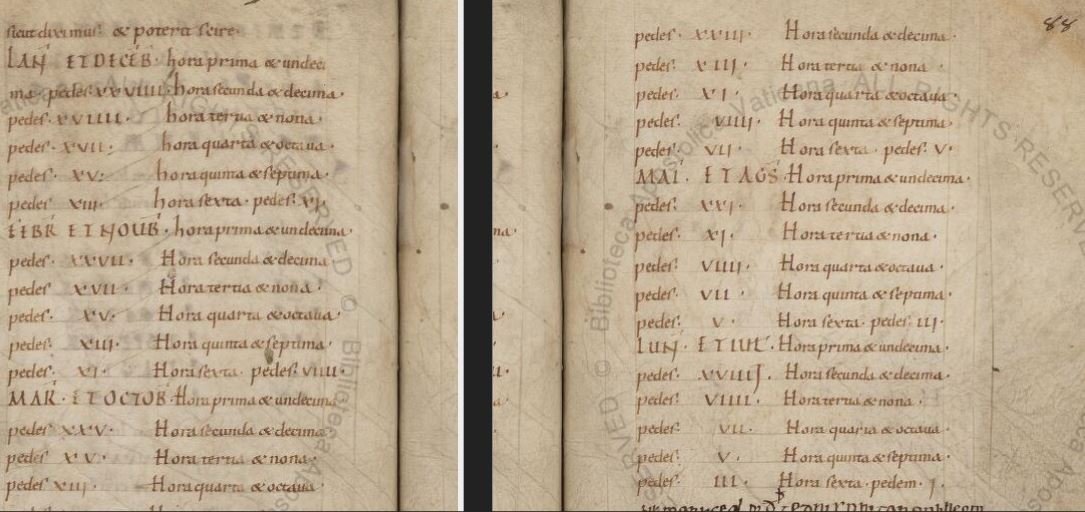 sicut diximus· & poterit scire·
IAN̄ ET DECEB̄· hora prima & undeci
ma· pedes· xxviiii· hora secunda & decima·
pedes· xviiii· hora tertia & nona·
pedes· xvii· hora quarta & octaua·
pedes· xv· hora quinta & septima·
pedes xiii· hora sexta· pedes· xi·
FEBR̄ ET NOUB̄· hora prima & undecima·
pedes· xxvii· Hora secunda & decima·
pedes xvii· Hora tertia & nona·
pedes· xv· Hora quarta & octaua·
pedes· xiii· Hora quinta & septima·
pedes· xi· Hora sexta· pedes· viiii·
MAR̄· ET OCTOB̄· Hora prima & undecima
pedes xxv· Hora secunda & decima·
pedes xv· Hora tertia & nona·
pedes xiii· Hora quarta & octaua·
88
pedes· xxiii· Hora secunda & decima·
pedes· xiii· Hora tertia & nona·
pedes· xi· Hora quarta & octaua·
pedes· viiii· Hora quinta & septima·
pedes· vii· Hora sexta· pedes· v·
MAI· ET AGS̄· Hora prima & undecima·
pedes· xxi· Hora secunda & decima·
pedes· xi· Hora tertia & nona·
pedes· viiii· Hora quarta & octaua·
pedes· vii· Hora quinta & septima·
pedes· v· Hora sexta· pedes· iii·
IUN̄· ET IUL̄· Hora prima & undecima·
pedes· xviiii· Hora secunda & decima·
pedes· viiii· Hora tertia & nona·
pedes· vii· Hora quarta & octaua·
pedes· v· Hora quinta & septima·
pedes· iii· Hora sexta· pedem· i·
© Biblioteca Apostolica Vaticana ALL RIGHTS RESERVED